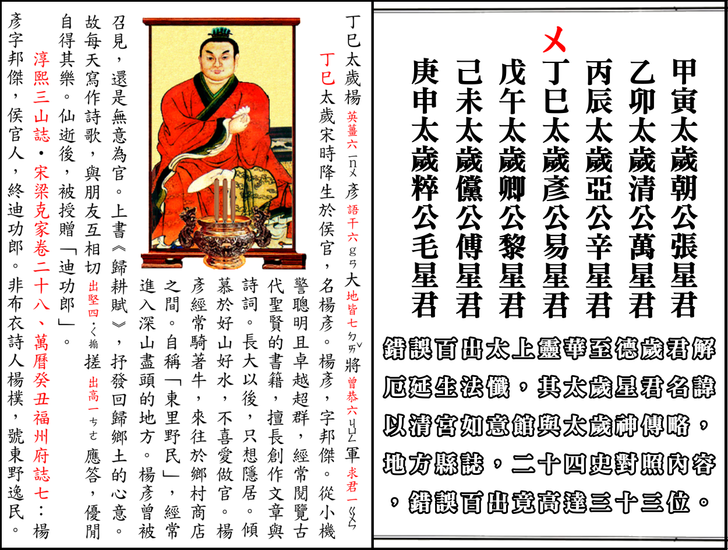 甲寅太歲朝公張星君
乙卯太歲清公萬星君
丙辰太歲亞公辛星君
㐅
丁巳太歲彥公易星君
戊午太歲卿公黎星君
己未太歲儻公傅星君
庚申太歲粹公毛星君
錯誤百出太上靈華至德歲君解
厄延生法懺，其太歲星君名諱
以清宮如意館與太歲神傳略，
地方縣誌，二十四史對照內容
，錯誤百出竟高達三十三位。
丁巳太歲楊英薑六彥語干六大地皆七將曾恭六軍求君一
丁巳太歲宋時降生於侯官，名楊彥。楊彥，字邦傑。從小機
警聰明且卓越超群，經常閱覽古
代聖賢的書籍，擅長創作文章與
詩詞。長大以後，只想隱居。傾
慕於好山好水，不喜愛做官。楊
彥經常騎著牛，來往於鄉村商店
之間。自稱「東里野民」，經常
進入深山盡頭的地方。楊彥曾被
召見，還是無意為官。上書《歸耕賦》，抒發回歸鄉土的心意。
故每天寫作詩歌，與朋友互相切出堅四搓出高一應答，優閒
自得其樂。仙逝後，被授贈「迪功郎」。
淳熙三山誌・宋梁克家卷二十八、萬曆癸丑福州府誌七：楊
彥字邦傑，侯官人，終迪功郎。非布衣詩人楊樸，號東野逸民。